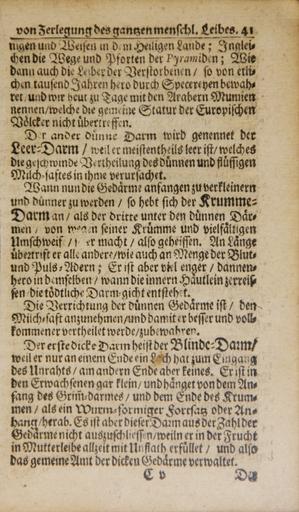 von Zerlegung des gantzen menschl. Leibes. 41
nigen und Weisen in dem Heiligen Lande; Inglei-
chen die Wege und Pforten der Pyramiden; Wie
dann auch die Leiber der Verstorbenen / so von etli-
chen tausend Jahren hero durch Specereyen bewah-
ret / und wir heut zu Tage mit den Arabern Mumien
nennen / welche die gemeine Statur der Europischen
Völcker nicht übertreffen.
Der ander dünne Darm wird genennet der
Leer-Darm / weil er meistentheils leer ist / welches
die geschwinde Vertheilung des dünnen und flüssigen
Milch-saftes in ihme verursachet.
Wann nun die Gedärme anfangen zu verkleinern
und dünner zu werden / so hebt sich der Krumme-
Darm an / als der dritte unter den dünnen Där-
men / von wegen seiner Krümme und vielfältigen
Umschweif / er macht / also geheissen. An Länge
übetrift er alle andere / wie auch an Menge der Blut-
und Puls-Adern; Er ist aber viel enger / dannen-
hero in demselben / wann die innern Häutlein zerreis-
sen die tödtliche Darm-gicht entstehet.
Die Verrichtung der dünnen Gedärme ist / den
Milch-saft anzunehmen / und damit er besser und voll-
kommener vertheilet werde / zubewahren.
Der erste dicke Darm heist der Blinde-Darm /
weil er nur an einem Ende ein Loch hat zum Eingang
des Unrahts / am andern Ende aber keines. Er ist in
den Erwachsenen gar klein / und hänget von dem An-
fang des Grimdarmes / und dem Ende des Krum-
men / als ein Wurm-förmiger Fortsatz oder An-
hang / herab. Es ist aber dieser Darm aus der Zahl der
Gedärme nicht auszuschliessen / weiln er in der Frucht
in Mutterleibe allzeit mit Unflath erfüllet / und also
das gemeine Amt der dicken Gedärme verwaltet.
C v Der